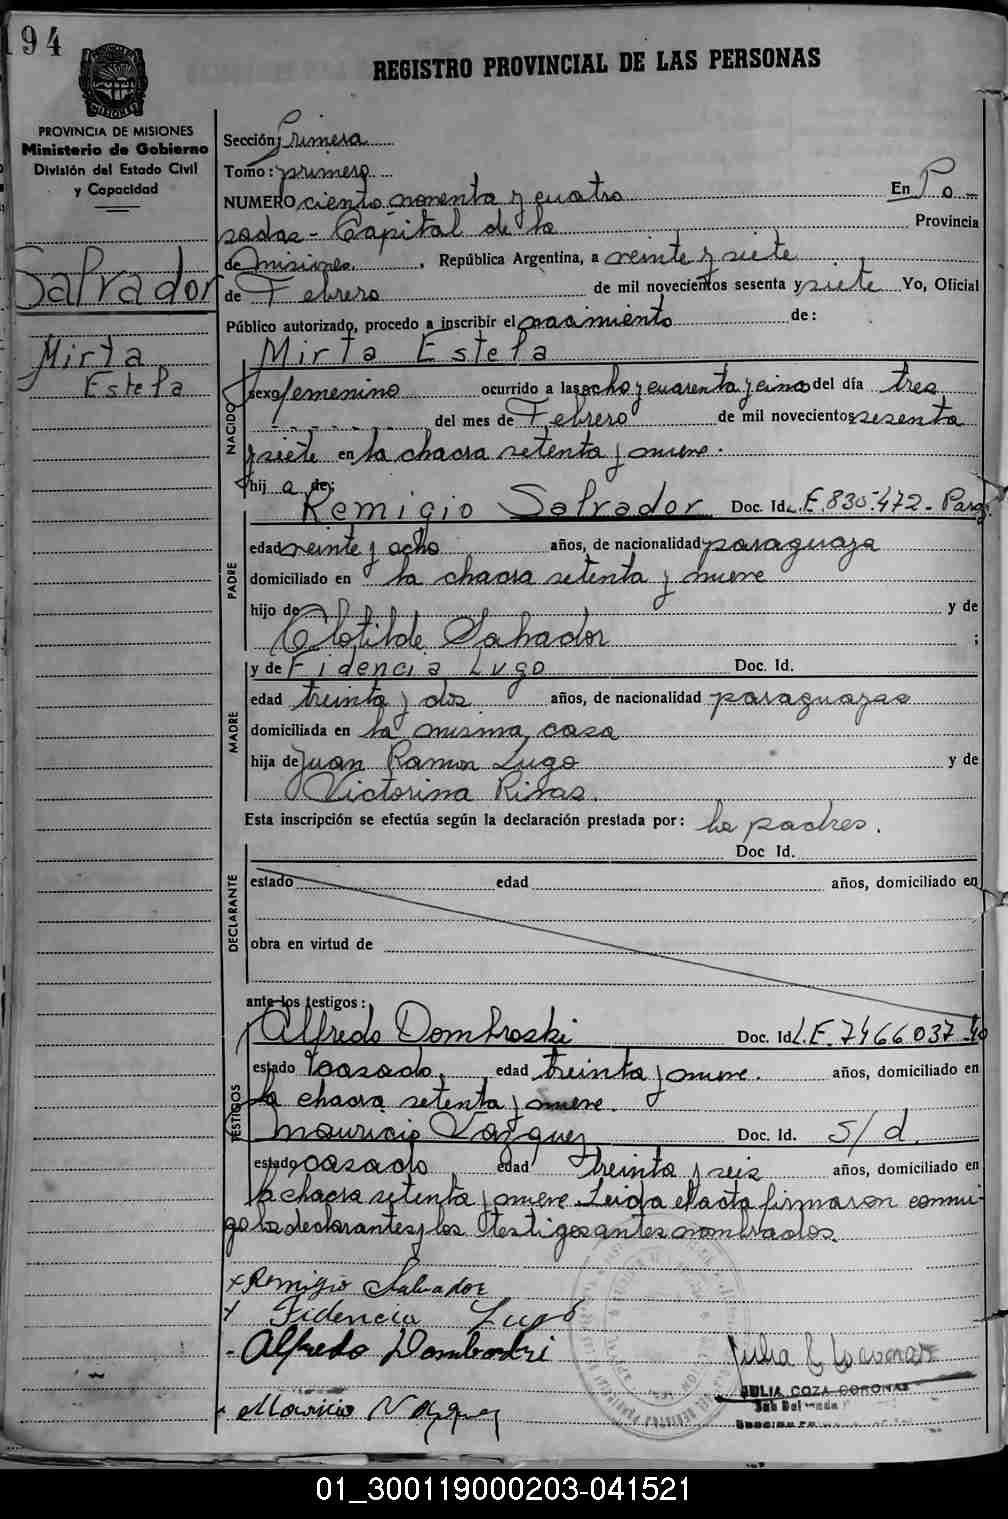 194
REGISTRO PROVINCIAL DE LAS PERSONAS
PROVINCIA DE MISIONES
Ministerio de Gobierno
División del Estado Civil
y Capacidad
Salvador
Mirta
Estela
Sección: Primera
Tomo: primero
NUMERO ciento noventa y cuatro En Po
sadas - Capital de la Provincia
de Misiones, República Argentina, a veinte y siete
de Febrero de mil novecientos sesenta y siete Yo, Oficial
Público autorizado, procedo a inscribir el nacimiento de:
Mirta Estela
NACIDO
sexo femenino ocurrido a las ocho y cuarenta y cinco del día tres
del mes de Febrero de mil novecientos sesenta
y siete en la chacra setenta y nueve.
hij a de:
PADRE
Remigio Salvador Doc. Id. L.E. 830.472 - Parag.
edad veinte y ocho años, de nacionalidad paraguaya
domiciliado en la chacra setenta y nueve
hijo de y de
Clotilde Salvador ;
y de Fidencia Lugo Doc. Id.
MADRE
edad treinta y dos años, de nacionalidad paraguayas
domiciliada en la misma casa
hija de Juan Ramon Lugo y de
Victorina Rivas.
Esta inscripción se efectúa según la declaración prestada por: los padres.
Doc Id.
DECLARANTE
estado edad años, domiciliado en
obra en virtud de
ante los testigos:
TESTIGOS
Alfredo Dombroski Doc. Id. L.E. 7466037
estado casado. edad treinta y nueve. años, domiciliado en
la chacra setenta y nueve.
Mauricio Vazquez Doc. Id. S/d.
estado casado edad treinta y seis años, domiciliado en
la chacra setenta y nueve. Leida el acta firmaron conmi-
go los declarantes y los testigos antes nombrados.
x Remigio Salvador
x Fidencia Lugo
- Alfredo Dombroski
- Mauricio Vazquez
JULIA COZA CORONAS
01_300119000203-041521